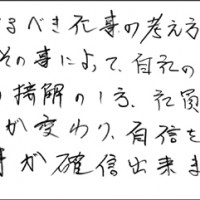 るべき仕事の考え方
その事によって、自社の
接解の1方、社員
が変わり、自信を
が確信出来ま